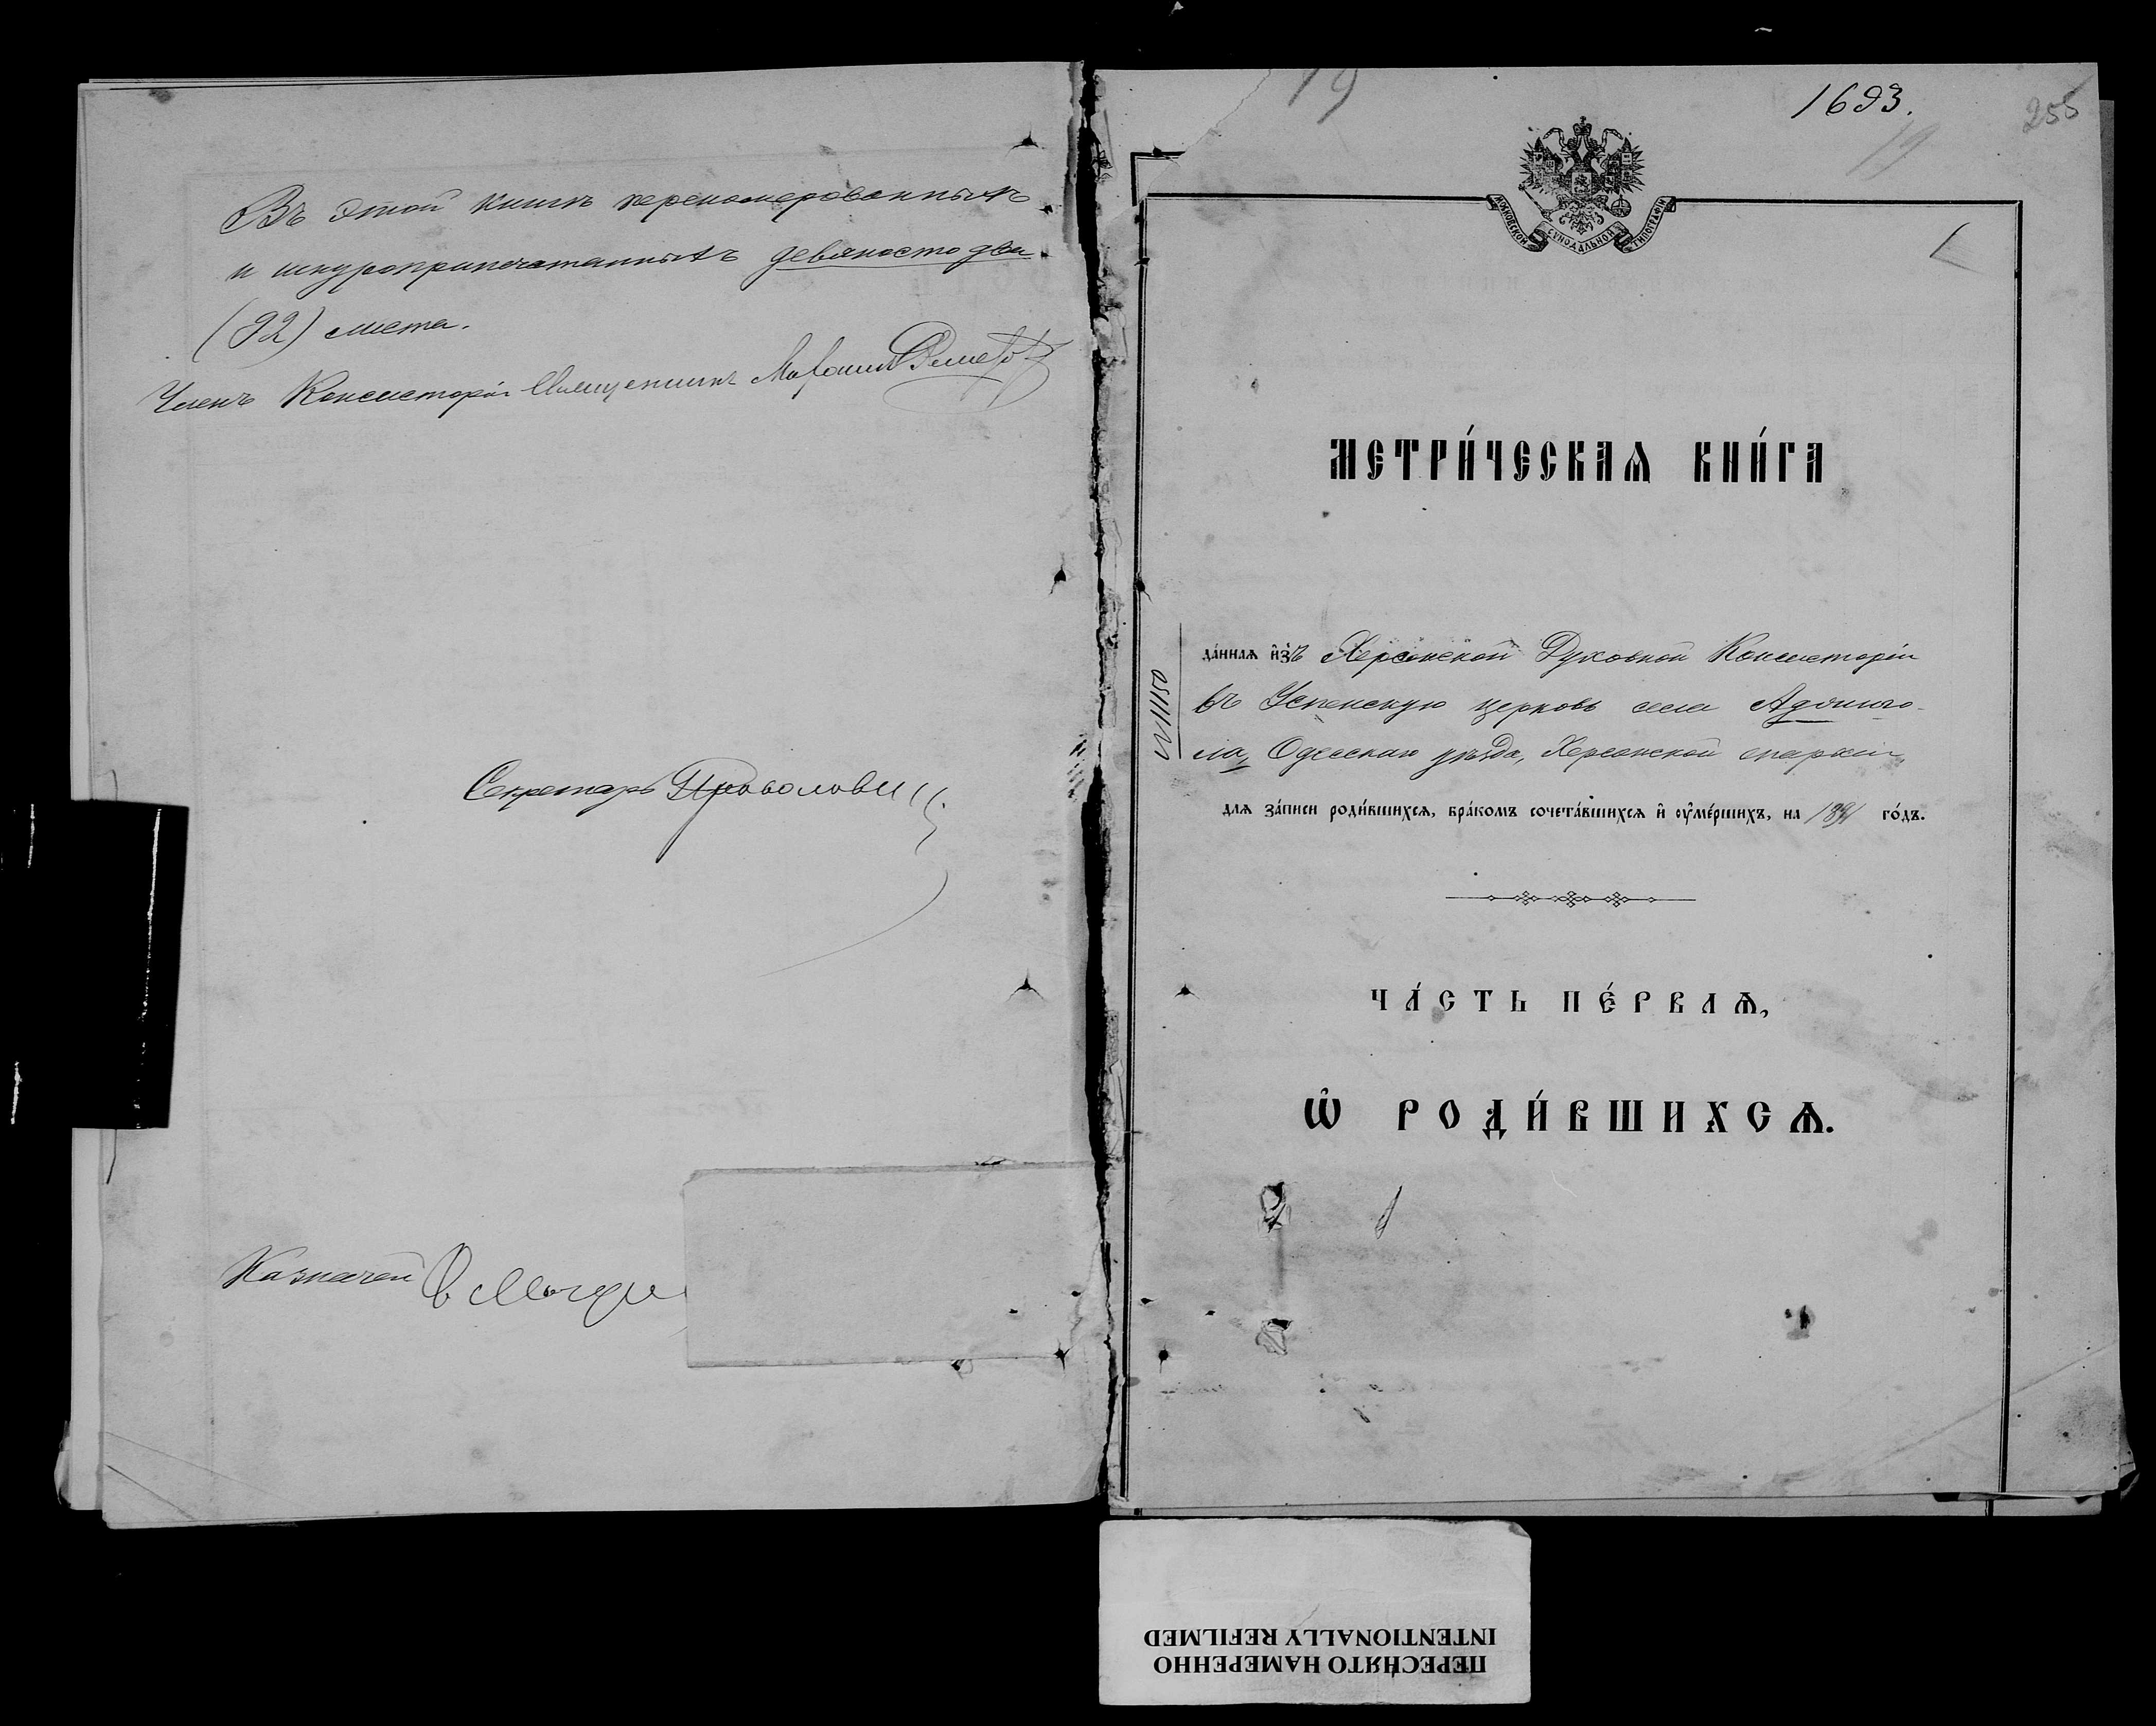 Въ этой книгѣ переномерованныхъ
и шнуроприпечатанныхъ девяносто два
(92) листа.
Членъ Консисторіи Священникъ
Секретарь
Казначей
19
1693.
255
19
МОСКОВСКОЙ СѴНОДАЛЬНОЙ ТИПОГРАФІИ
1
МЕТРИ́ЧЕСКАѦ КНИ́ГА
№ 11150
да́ннаѧ и҆зъ Херсонской Духовной Консисторіи
въ Успенскую церковь села Аджиго-
ла, Одесскаго уѣзда, Херсонской епархіи,
длѧ за́писи роди́вшихсѧ, бра́комъ сочета́вшихсѧ и҆ ᲂу҆ме́ршихъ, на 1891 го́дъ.
ЧА́СТЬ ПЕ́РВАѦ,
Ѽ РОДИ́ВШИХСѦ.
ПЕРЕСНЯТО НАМЕРЕННО
INTENTIONALLY REFILMED